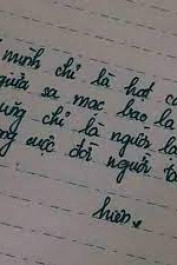 mình chỉ là hạt c
giữa sa mạc bao la
cũng chỉ là người l
ong cuộc đời người t
hiên